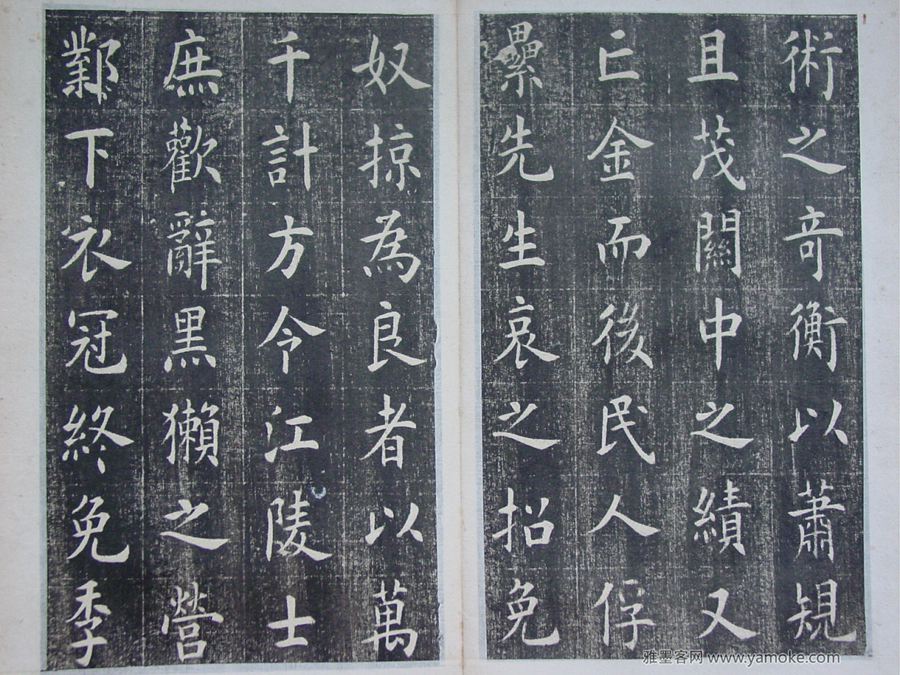 術之奇衡以蕭規
且茂關中之績又
亡金而後民人俘
纍先生哀之招免
奴掠為良者以萬
千計方今江陵士
庶歡辭黑獺之營
鄴下衣冠終免季
雅墨客网 www.yamoke.com